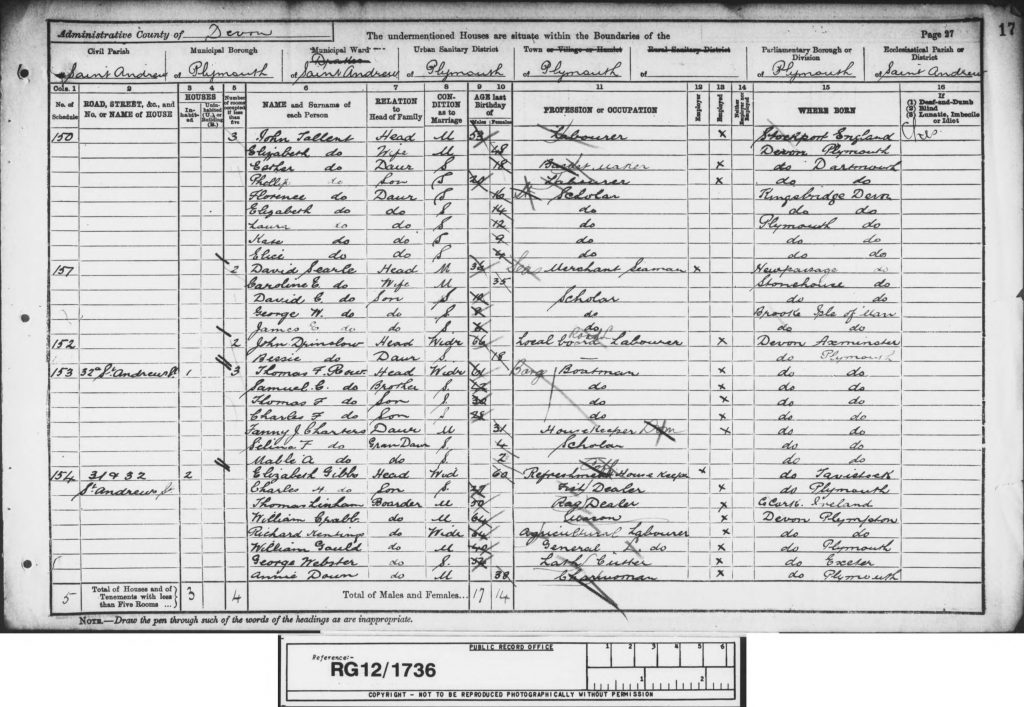 17
Administrative County of Devon The undermentioned Houses are situate within the Boundaries of the Page 27
Civil Parish Municipal Borough Municipal Ward Urban Sanitary District Town or Village or Hamlet Rural Sanitary District Parliamentary Borough or Division Ecclesiastical Parish or District
of Saint Andrew of Plymouth of Saint Andrew of Plymouth of Plymouth of of Plymouth of Saint Andrew
Cols. 1 2 3 4 5 6 7 8 9 10 11 12 13 14 15 16
No. of Schedule ROAD, STREET, &c., and No. or NAME of HOUSE HOUSES Inhabited Uninhabited (U.) or Building (B.) Number of rooms occupied if less than five NAME and Surname of each Person RELATION to Head of Family CONDITION as to Marriage AGE last Birthday of Males Females PROFESSION or OCCUPATION Employer Employed Neither WHERE BORN If (1) Deaf-and-Dumb (2) Blind (3) Lunatic, Imbecile or Idiot
150 3 John Tallent Head M 53 Labourer x Stockport England
Elizabeth do Wife M 48 Devon Plymouth
Esther do Daur S 18 Basket maker x do Dartmouth
Phillip do Son S 20 Labourer x do do
Florence do Daur S 16 Scholar Kingsbridge Devon
Elizabeth do do S 14 do do do
Laura do do S 12 do Plymouth do
Kate do do S 9 do do do
Elice do do S 4 do do do
151 2 David Searle Head M 36 Merchant Seaman x Newpassage do
Caroline E. do Wife M 35 Stonehouse do
David C. do Son S 12 Scholar do do
George W. do do S 8 do Brooke Isle of Man
James E do do S 6 do do do
152 2 John Dimslow Head Widr 66 Local board Labourer x Devon Axminster
Bessie do Daur S 18 — do Plymouth
153 32 St Andrews St 1 3 Thomas F. Rowe Head Widr 61 Barg Boatman x do do
Samuel E. do Brother S. do x do do
Thomas F do Son S. do x do do
Charles F do Son S 28 do x do do
Fanny J Charters Daur M 31 House Keeper x do do
Selina F do Gran Daur S. 4 Scholar do do
Mable A. do do S. 2 do do
154 31 & 32 2 Elizabeth Gibbs Head Wid 60 Refreshment House Keeper x do Tavistock
St Andrews St Charles H do Son S 29 Fish Dealer x do Plymouth
Thomas Linham Boarder M 50 Rag Dealer x C Cork Ireland
William Crabb do M 64 Mason x Devon Plympton
Richard do Widr 64 Agricultural Labourer x do do
William Gauld do M 40 General L. do x do Plymouth
George Webster do S. 54 Lath Cutter x do Exeter
Annie Down do M 38 Charwoman x do Plymouth
5 Total of Houses and of Tenements with less than Five Rooms ... 3 4 Total of Males and Females... 17 14
NOTE.—Draw the pen through such of the words of the headings as are inappropriate.
PUBLIC RECORD OFFICE
Reference:-
RG12/1736
1 2 3 4 5 6
1 2
COPYRIGHT - NOT TO BE REPRODUCED PHOTOGRAPHICALLY WITHOUT PERMISSION